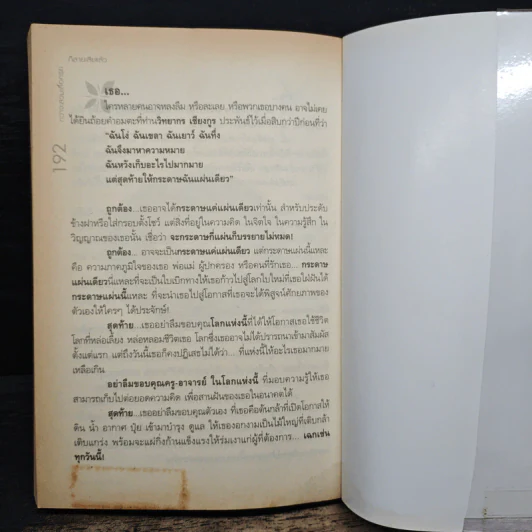 192
เธอ...
ใครหลายคนอาจหลงลืม หรือละเลย หรือพวกเธอบางคน อาจไม่เคย
ได้ยินถ้อยคำอมตะที่ท่านวิทยากร เชียงกูร ประพันธ์ไว้เมื่อสิบกว่าปีก่อนที่ว่า
"ฉันโง่ ฉันเขลา ฉันเยาว์ ฉันทึ่ง
ฉันจึงมาหาความหมาย
ฉันหวังเก็บอะไรไปมากมาย
แต่สุดท้ายให้กระดาษฉันแผ่นเดียว"
ถูกต้อง...เธออาจได้กระดาษแค่แผ่นเดียวเท่านั้น สำหรับประดับ
ข้างฝาหรือใส่กรอบตั้งโชว์ แต่สิ่งที่อยู่ในความคิด ในจิตใจ ในความรู้สึก ใน
วิญญาณของเธอนั้น เชื่อว่า จะกระดาษกี่แผ่นก็บรรยายไม่หมด!
ถูกต้อง... อาจจะเป็นกระดาษแค่แผ่นเดียว แต่กระดาษแผ่นนี้แหละ
คือ ความภาคภูมิใจของเธอ พ่อแม่ ผู้ปกครอง หรือคนที่รักเธอ... กระดาษ
แผ่นเดียวนี้แหละที่จะเป็นใบเบิกทางให้เธอก้าวไปสู่โลกใบใหม่ที่เธอใฝ่ฝันได้
กระดาษแผ่นนี้แหละ ที่จะนำเธอไปสู่โอกาสที่เธอจะได้พิสูจน์ศักยภาพของ
ตัวเองให้ใครๆ ได้ประจักษ์!
สุดท้าย...เธออย่าลืมขอบคุณโลกแห่งนี้ที่ได้ให้โอกาสเธอใช้ชีวิต
โลกที่หล่อเลี้ยง หล่อหลอมชีวิตเธอ โลกซึ่งเธออาจไม่ได้ปรารถนาเข้ามาสัมผัส
ตั้งแต่แรก, แต่ถึงวันนี้เธอก็คงปฏิเสธไม่ได้ว่า... ที่แห่งนี้ให้อะไรเธอมากมาย
เหลือเกิน
อย่าลืมขอบคุณครู-อาจารย์ ในโลกแห่งนี้ ที่มอบความรู้ให้เธอ
สามารถเก็บไปต่อยอดความคิด เพื่อสานฝันของเธอในอนาคตได้
สุดท้าย...เธออย่าลืมขอบคุณตัวเอง ที่เธอคือต้นกล้าที่เปิดโอกาสให้
ดิน น้ำ อากาศ ปุ๋ย เข้ามาบำรุง ดูแล ให้เธองอกงามเป็นไม้ใหญ่ที่เติบกล้า
เติบแกร่ง พร้อมจะแผ่กิ่งก้านแข็งแรงให้ร่มเงาแก่ผู้ที่ต้องการ... เฉกเช่น
ทุกวันนี้!